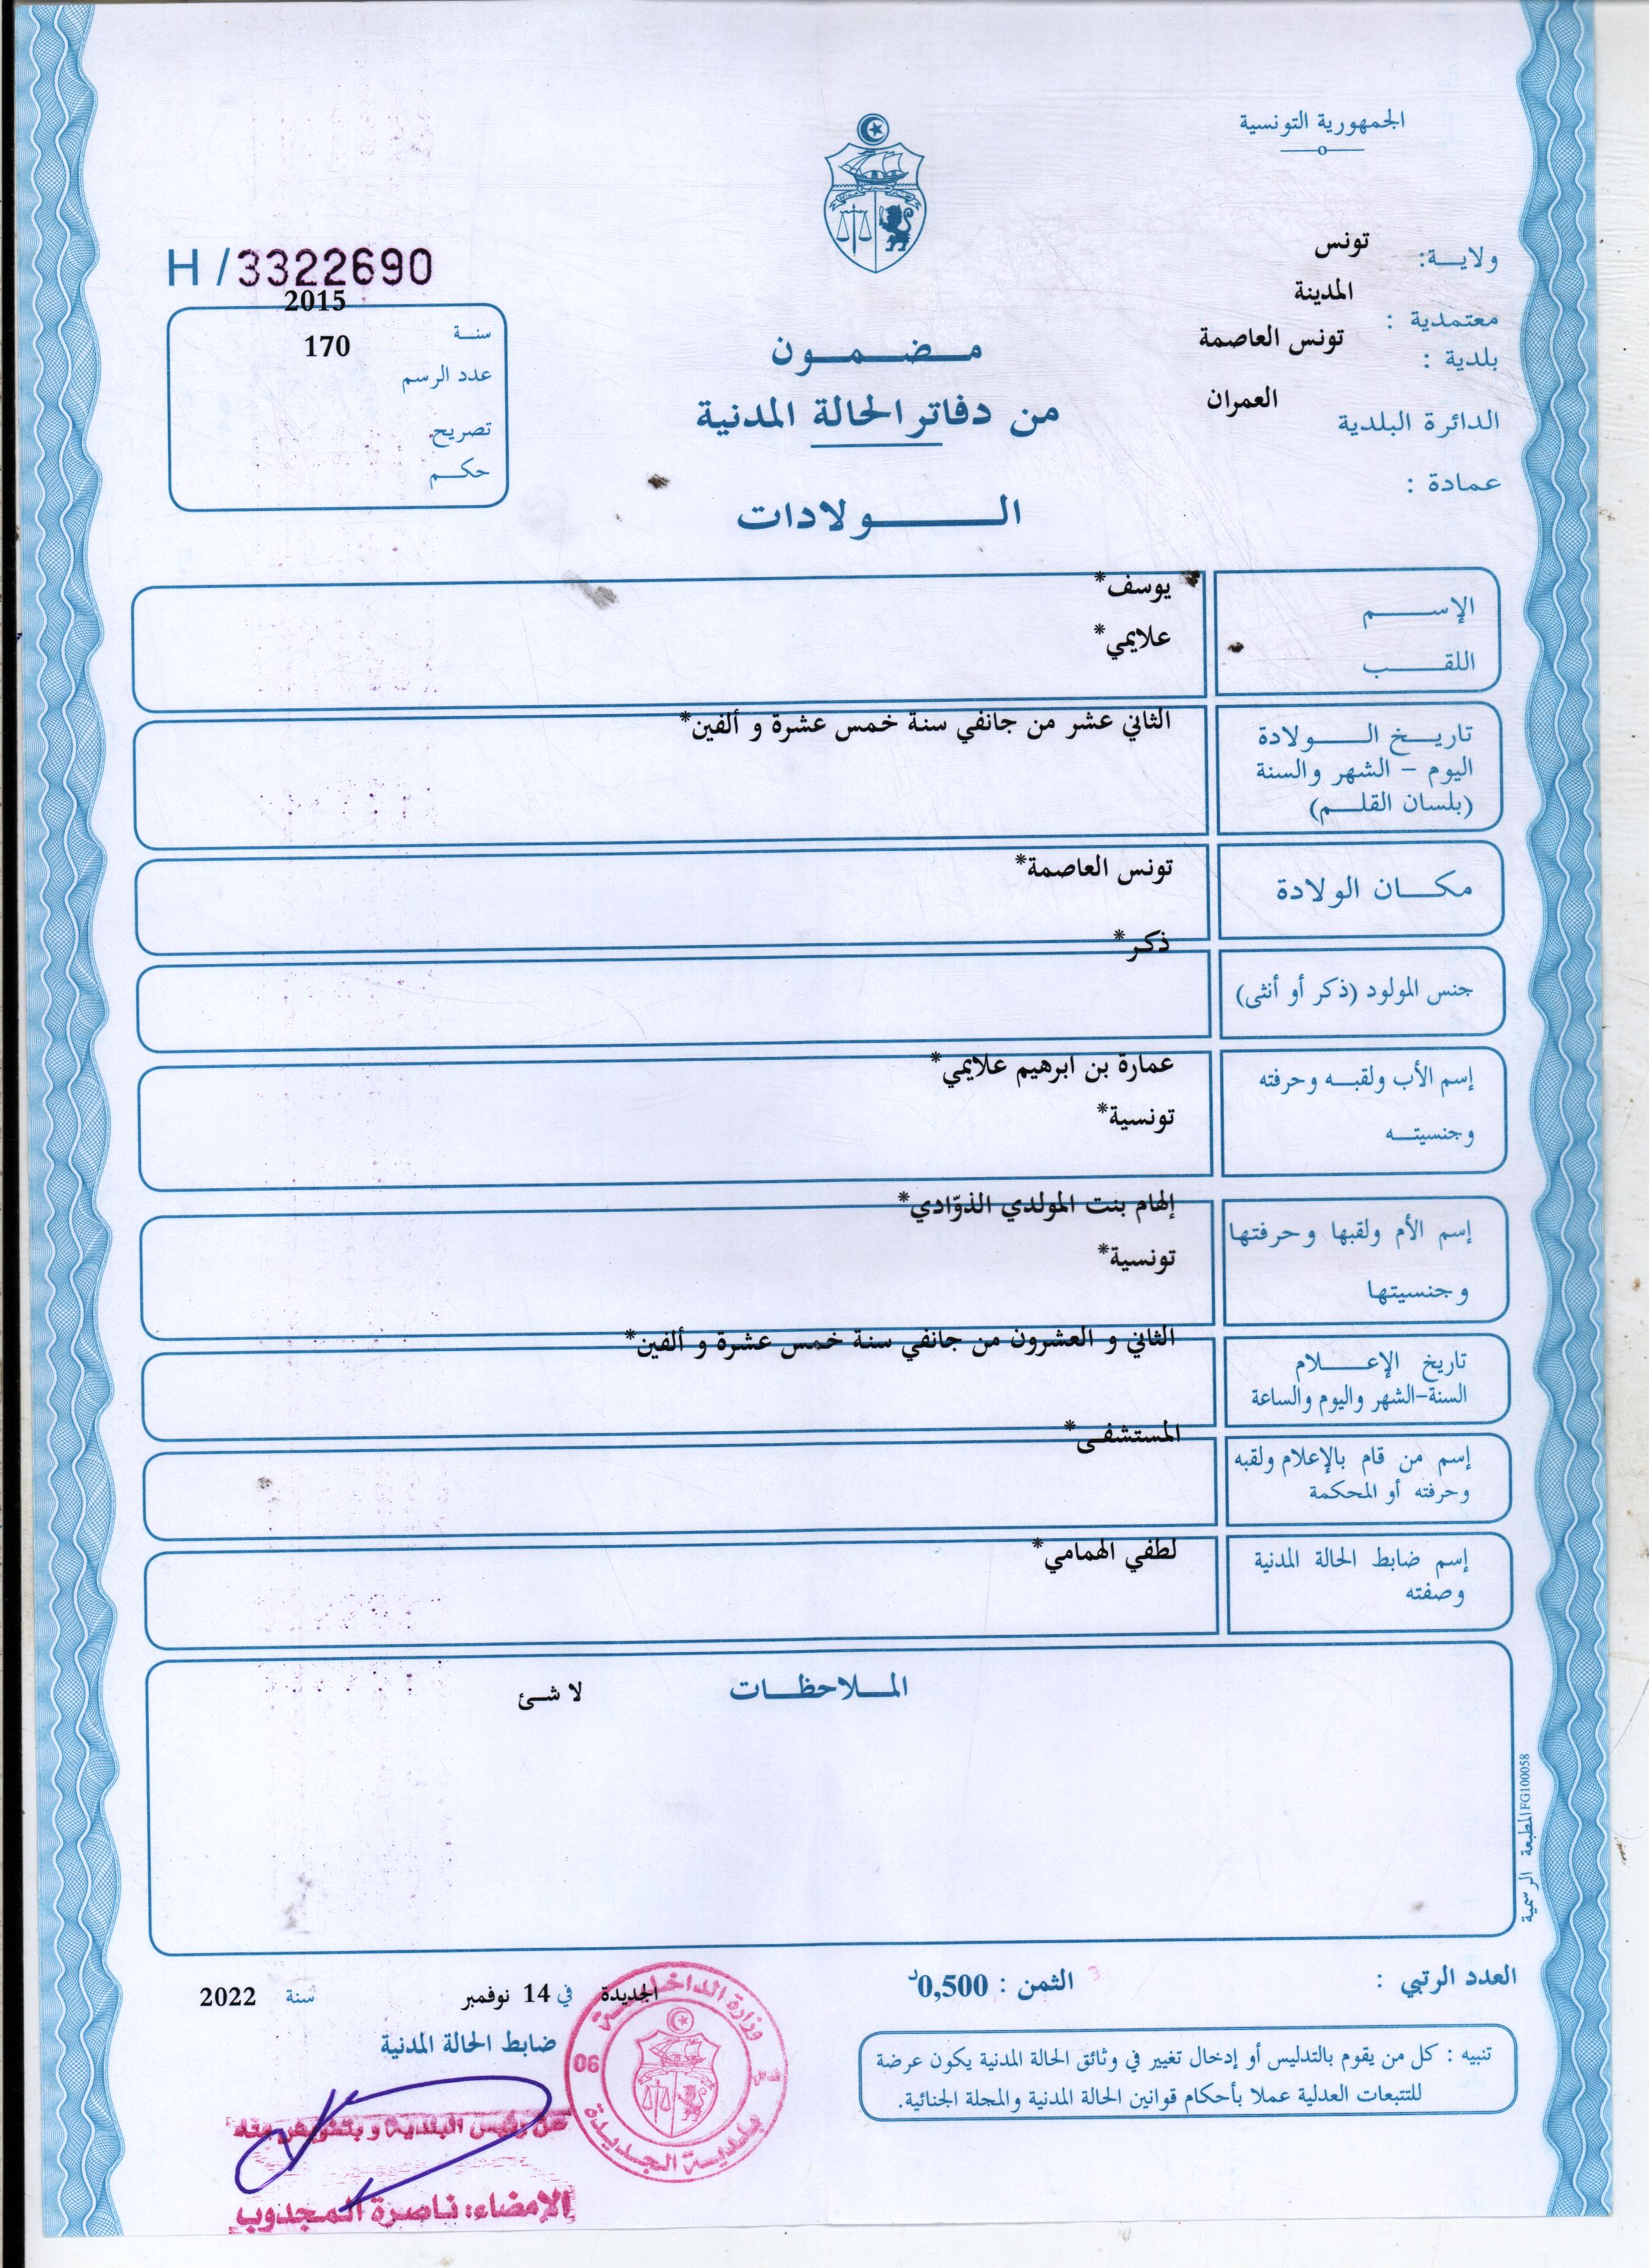 الجمهورية التونسية
ولاية: تونس
معتمدية : المدينة
بلدية : تونس العاصمة
الدائرة البلدية العمران
عمادة :
H / 3322690
سنة 2015
عدد الرسم 170
تصريح
حكم
مضمون
من دفاتر الحالة المدنية
الولادات
الإسم يوسف*
اللقب علايمي*
تاريخ الولادة الثاني عشر من جانفي سنة خمس عشرة و ألفين*
اليوم - الشهر والسنة
(بلسان القلم)
مكان الولادة تونس العاصمة*
جنس المولود (ذكر أو أنثى) ذكر*
إسم الأب ولقبه وحرفته عمارة بن ابرهيم علايمي*
وجنسيته تونسية*
إسم الأم ولقبها وحرفتها إلهام بنت المولدي الذوّادي*
وجنسيتها تونسية*
تاريخ الإعلام الثاني و العشرون من جانفي سنة خمس عشرة و ألفين*
السنة-الشهر واليوم والساعة
إسم من قام بالإعلام ولقبه المستشفى*
وحرفته أو المحكمة
إسم ضابط الحالة المدنية لطفي الهمامي*
وصفته
الملاحظات لا شئ
المطبعة الرسمية FG100058
العدد الرتبي :
الثمن : 0,500د
الجديدة في 14 نوفمبر سنة 2022
ضابط الحالة المدنية
تنبيه : كل من يقوم بالتدليس أو إدخال تغيير في وثائق الحالة المدنية يكون عرضة
للتتبعات العدلية عملا بأحكام قوانين الحالة المدنية والمجلة الجنائية.
وزارة الداخلية
06
بلدية الجديدة
عن رئيس البلدية و بتفويض منه
الإمضاء: ناصرة المجدوب